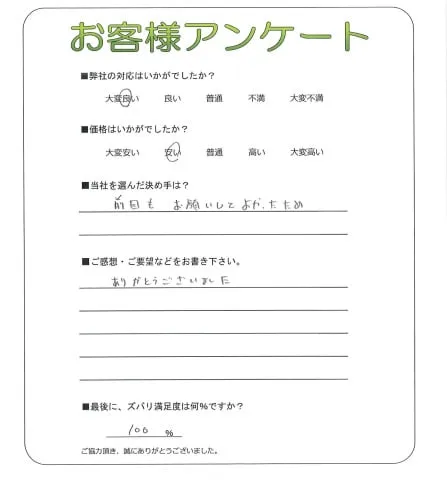 お客様アンケート
■弊社の対応はいかがでしたか？
大変良い 良い 普通 不満 大変不満
■価格はいかがでしたか？
大変安い 安い 普通 高い 大変高い
■当社を選んだ決め手は？
前回も お願いしてよかったため
■ご感想・ご要望などをお書き下さい。
ありがとうございました
■最後に、ズバリ満足度は何％ですか？
100 %
ご協力頂き、誠にありがとうございました。